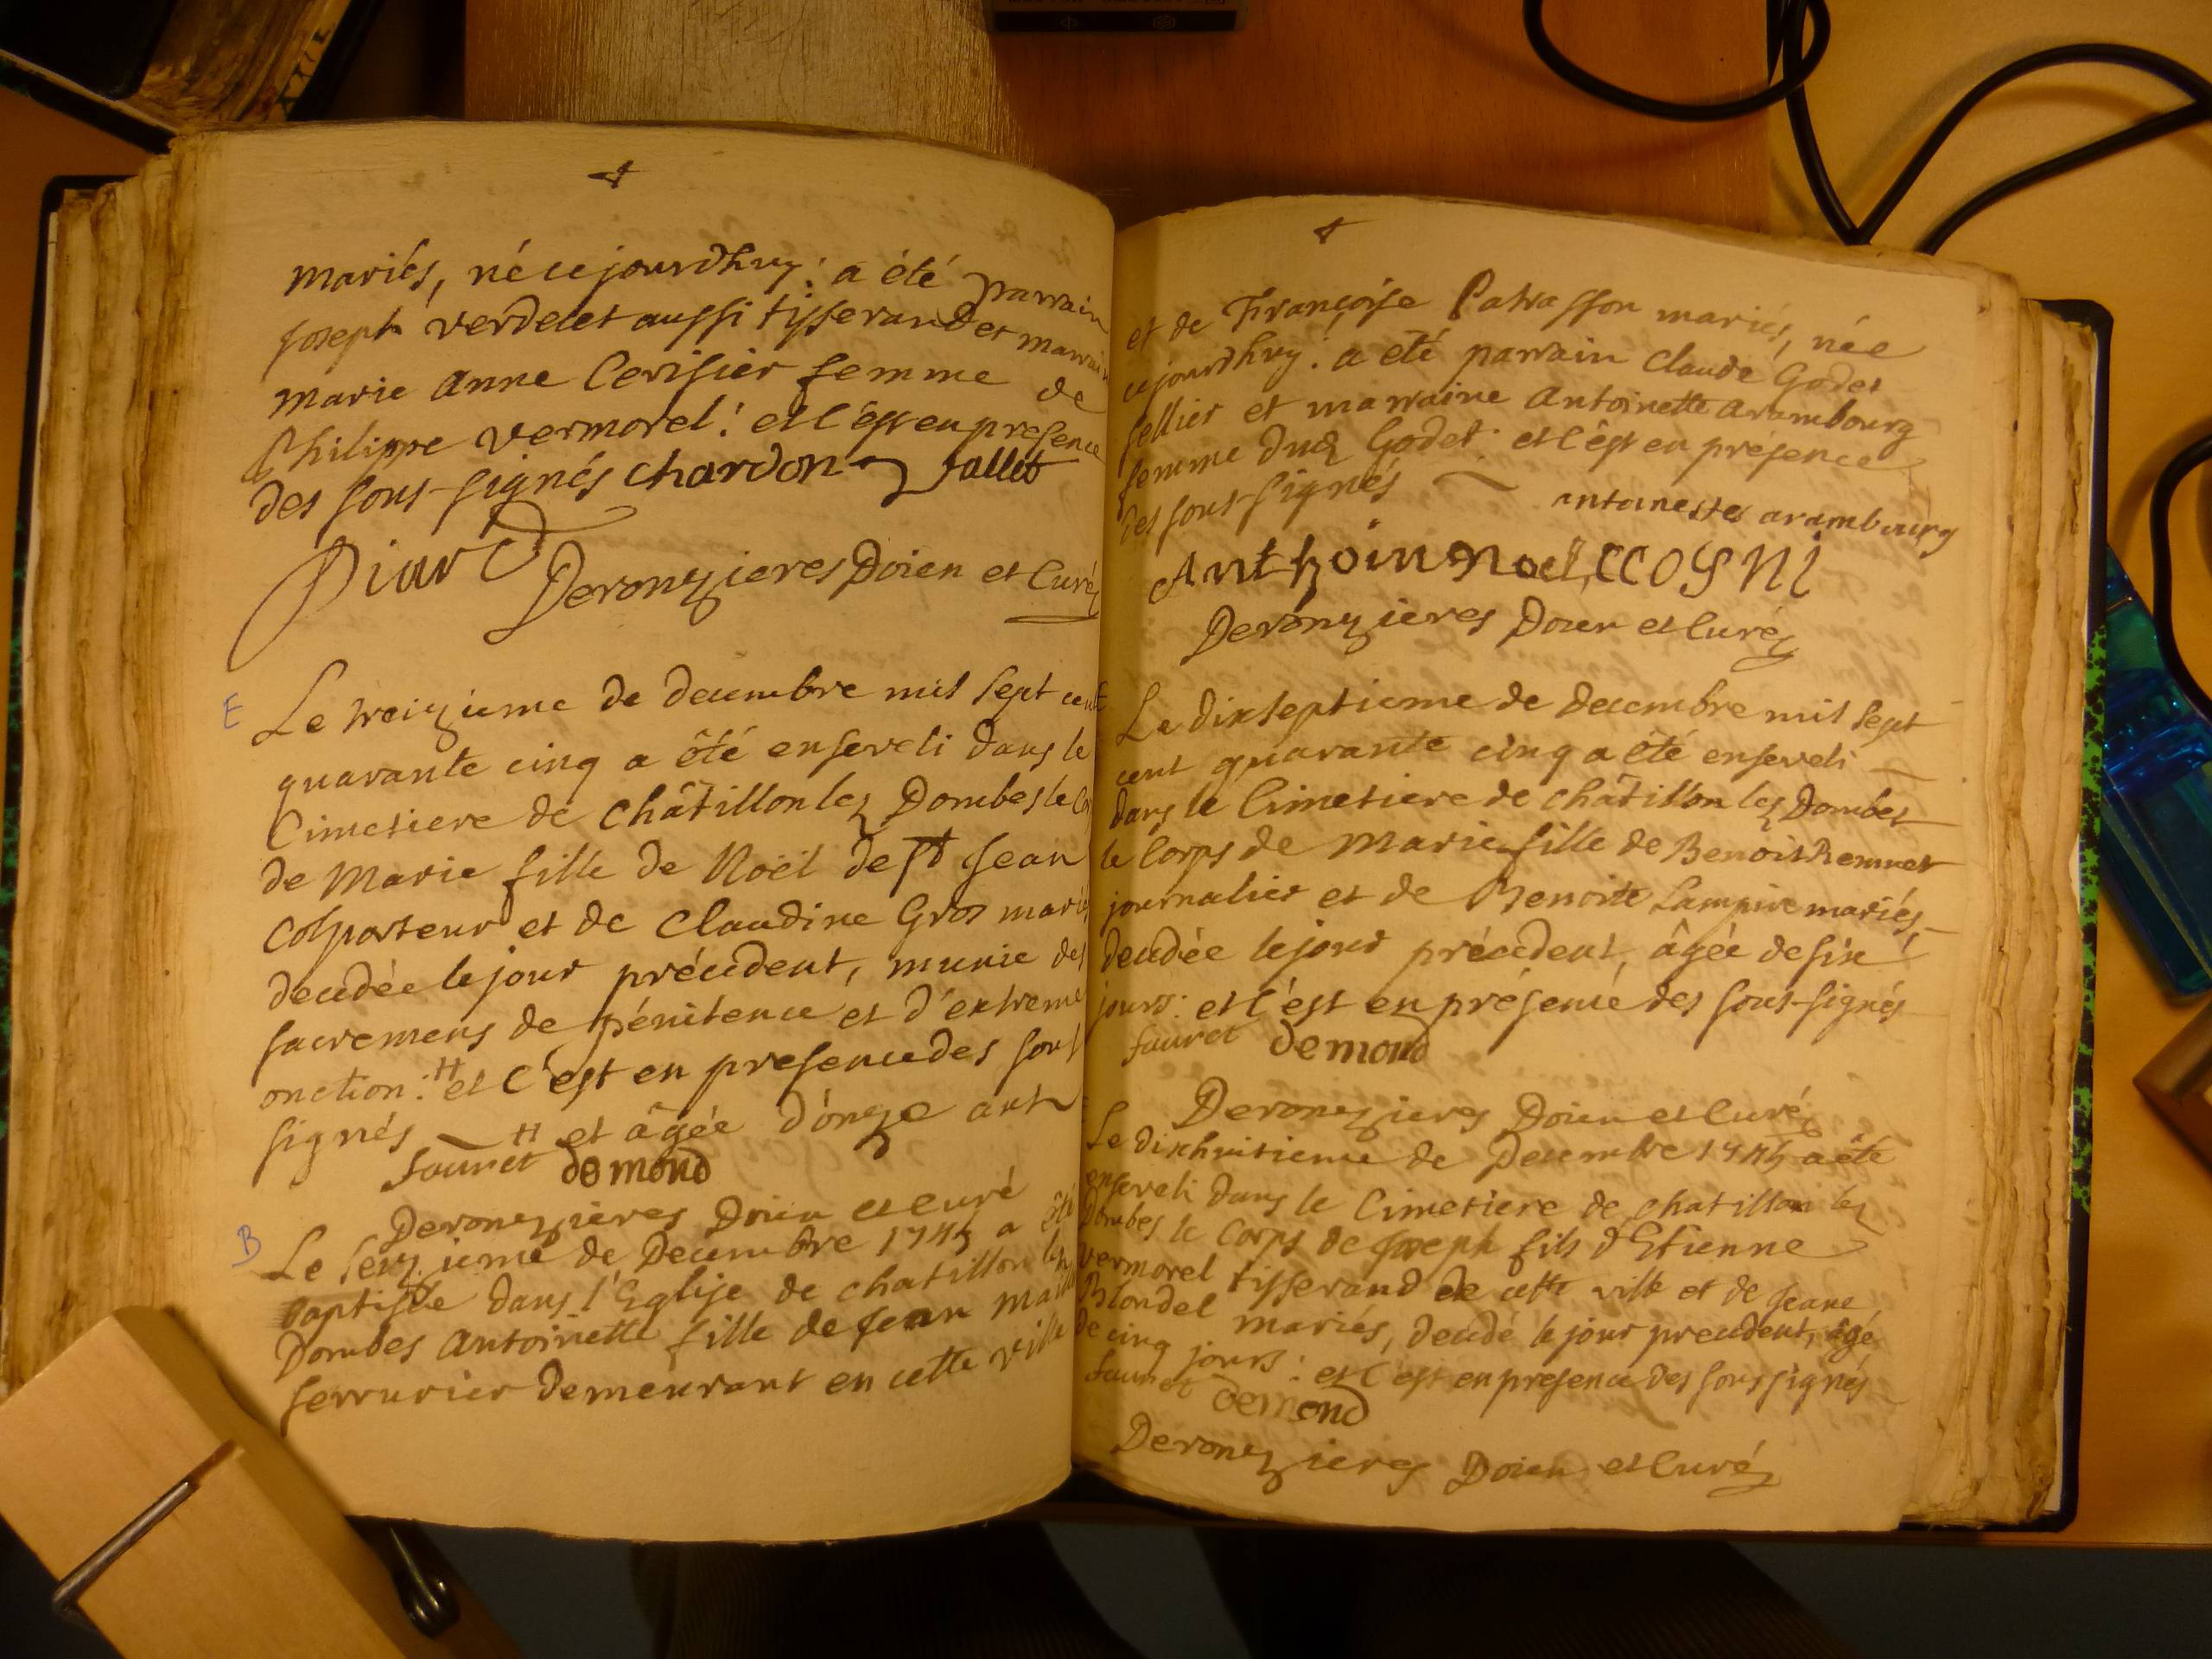 mariés, né cejourdhuy: a été parrain
Joseph verdelet aussi tisserand et marrain
marie anne Cerisier femme de
Philippe vermorel: et c'est en presence
des sous-signés chardon Jallet
Piard Deronzieres Doien et Curé
E Le treizieme de decembre mil sept cent
quarante cinq a été enseveli dans le
Cimetiere de châtillon lez Dombes le
de Marie fille de Noël de St Jean
Colporteur et de Claudine Gros mariés
decedée le jour précedent, munie des
sacremens de pénitence et d'extreme
onction: # et c'est en presence des sous
signés # et âgée d'onze ans
fauret demond
Deronzieres Doien et curé
B Le seizieme de Decembre 1745 a été
baptisée dans l'Eglise de chatillon lez
Dombes Antoinette fille de Jean
serrurier demeurant en cette ville
et de Françoise Patrasson mariés, née
cejourdhuy: a été parrain Claude Godet
sellier et marraine Antoinette arambourg
femme dud Godet: et c'est en présence
des sous-signés antoinette arambourg
Deronzieres Doien et Curé
Le dixseptieme de decembre mil sept
cent quarante cinq a été enseveli
dans le Cimetiere de châtillon lez Dombes
le Corps de marie fille de Benoist
journalier et de Benoite Lampire mariés,
decedée le jour précedent, âgée de six
jours: et c'est en présence des sous-signés
fauret demond
Deronzieres Doien et Curé
Le dixhuitieme de Decembre 1745 a été
enseveli dans le Cimetiere de chatillon lez
Dombes le Corps de Joseph fils d'Etienne
vermorel tisserand de cette ville et de Jeane
Blondel mariés, decedé le jour precedent, âgé
de cinq jours: et c'est en presence des sous signés
fauret demond
Deronzieres Doien et Curé